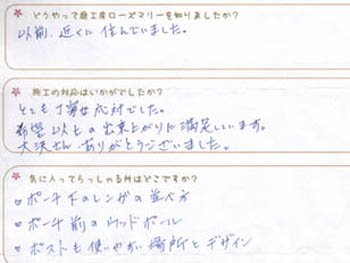 どうやって庭工房ローズマリーを知りましたか?
以前、近くに住んでいました。
施工の対応はいかがでしたか?
とても丁寧な応対でした。
希望以上の出来上がりに満足しています。
大沢さん ありがとうございました。
気に入ってらっしゃる所はどこですか?
ポーチ下のレンガの並べ方
ポーチ前のウッドポール
ポストも使いやすい場所とデザイン